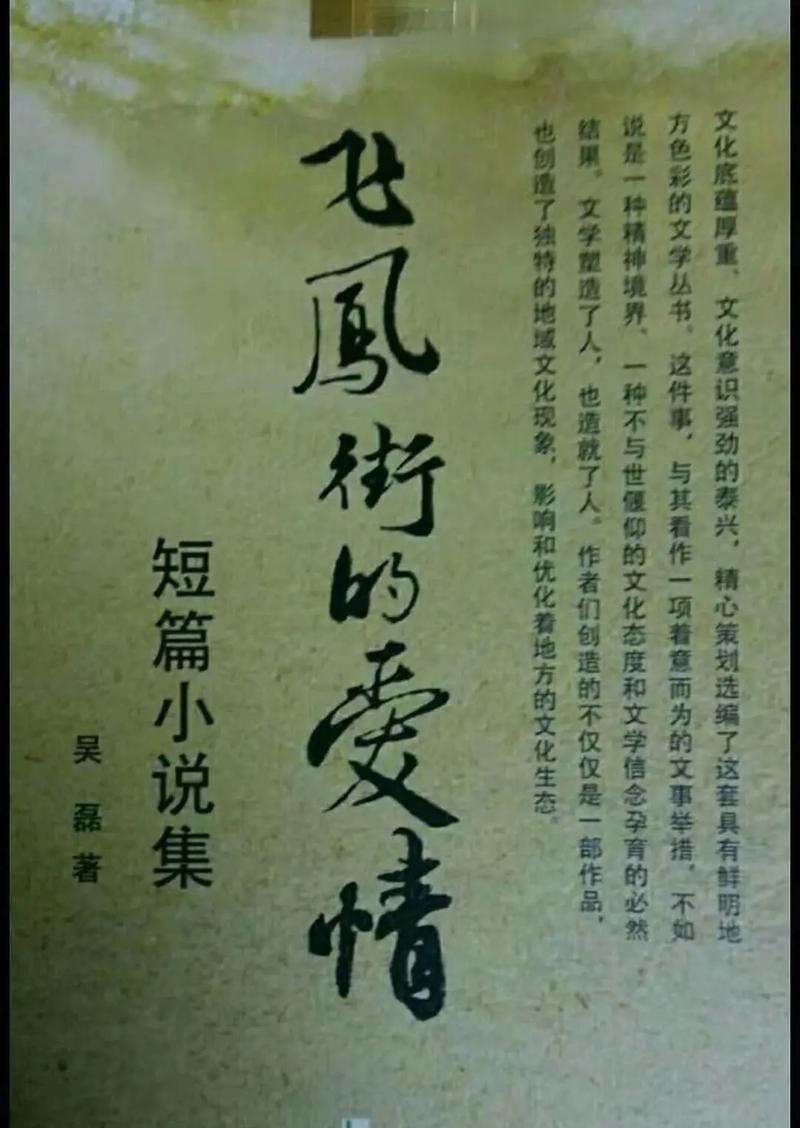 文化底蕴厚重、文化意识强劲的泰兴，精心策划选编了这套具有鲜明地
方色彩的文学丛书。这件事，与其看作一项着意而为的文事举措，不如
说是一种精神境界、一种不与世偃仰的文化态度和文学信念孕育的必然
结果。文学塑造了人，也造就了人。作者们创造的不仅仅是一部作品，
也创造了独特的地域文化现象，影响和优化着地方的文化生态。
飞鳳街的愛情
短篇小说集
吴磊著